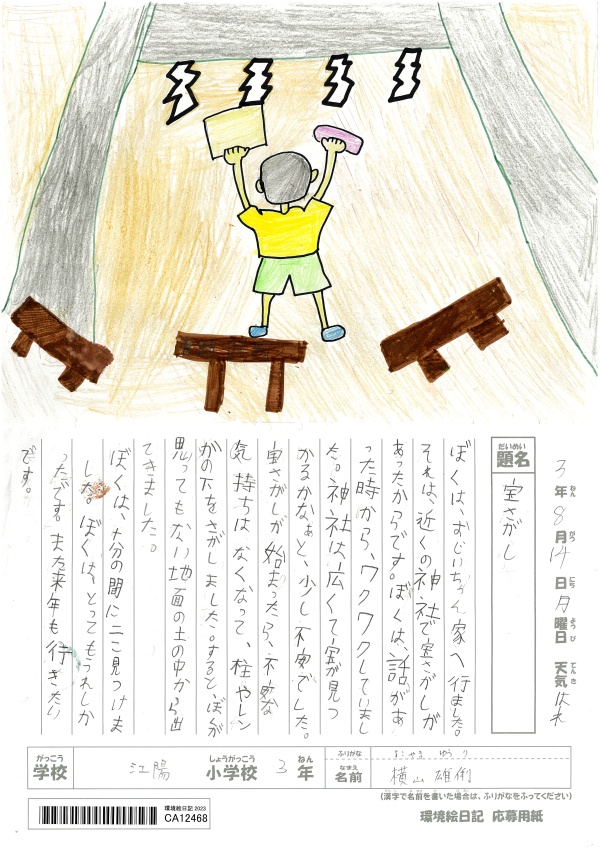 3年8月14日月曜日 天気はれ
題名 宝さがし
ぼくは、おじいちゃん家へ行ました。
それは、近くの神社で宝さがしが
あったからです。ぼくは、話があ
った時から、ワクワクしていまし
た。神社は、広くて宝が見つ
かるかなぁと、少し不安でした。
宝さがしが始まったら、不安な
気持ちはなくなって、柱やレン
がの下をさがしました。すると、ぼくが
思ってもない地面の土の中から出
てきました。
ぼくは、十分の間に二こ見つけま
した。ぼくは、とってもうれしか
ったです。また来年も行きたい
です。
がっこう
学校 江陽 しょうがっこう
小学校 3 ねん
年
ふりがな よこやま ゆうり
なまえ
名前 横山 雄俐
(漢字で名前を書いた場合は、ふりがなをふってください)
環境絵日記 2023
CA12468
環境絵日記 応募用紙